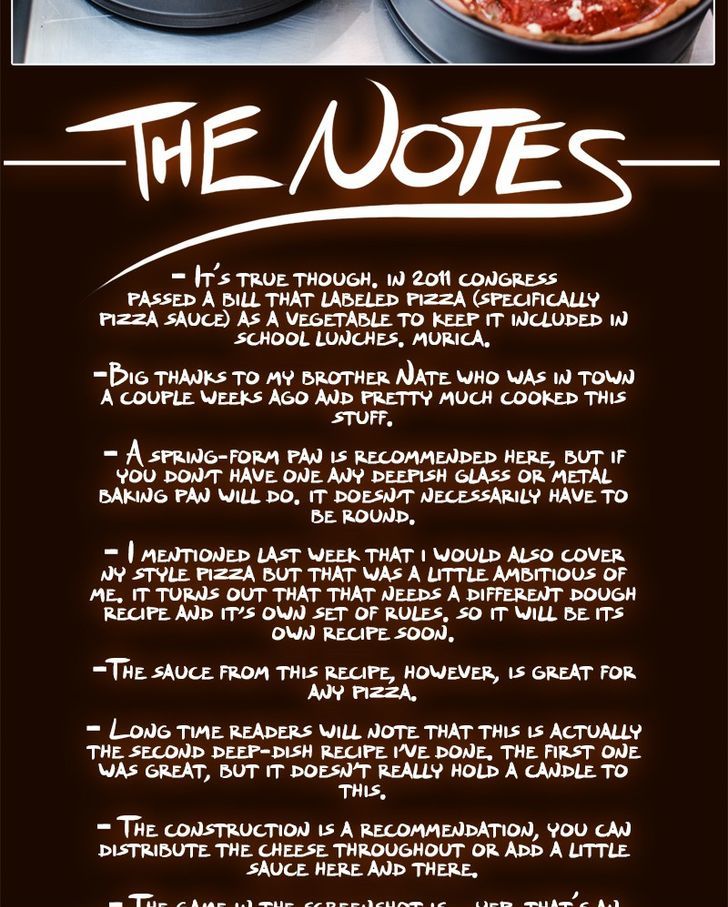 THE NOTES
- IT'S TRUE THOUGH. IN 2011 CONGRESS
PASSED A BILL THAT LABELED PIZZA (SPECIFICALLY
PIZZA SAUCE) AS A VEGETABLE TO KEEP IT INCLUDED IN
SCHOOL LUNCHES. MURICA.
-BIG THANKS TO MY BROTHER NATE WHO WAS IN TOWN
A COUPLE WEEKS AGO AND PRETTY MUCH COOKED THIS
STUFF.
- A SPRING-FORM PAN IS RECOMMENDED HERE, BUT IF
YOU DON'T HAVE ONE ANY DEEPISH GLASS OR METAL
BAKING PAN WILL DO. IT DOESN'T NECESSARILY HAVE TO
BE ROUND.
- I MENTIONED LAST WEEK THAT I WOULD ALSO COVER
NY STYLE PIZZA BUT THAT WAS A LITTLE AMBITIOUS OF
ME. IT TURNS OUT THAT THAT NEEDS A DIFFERENT DOUGH
RECIPE AND IT'S OWN SET OF RULES. SO IT WILL BE ITS
OWN RECIPE SOON.
-THE SAUCE FROM THIS RECIPE, HOWEVER, IS GREAT FOR
ANY PIZZA.
- LONG TIME READERS WILL NOTE THAT THIS IS ACTUALLY
THE SECOND DEEP-DISH RECIPE I'VE DONE. THE FIRST ONE
WAS GREAT, BUT IT DOESN'T REALLY HOLD A CANDLE TO
THIS.
- THE CONSTRUCTION IS A RECOMMENDATION, YOU CAN
DISTRIBUTE THE CHEESE THROUGHOUT OR ADD A LITTLE
SAUCE HERE AND THERE.
- THE GAME IN THE SCREENSHOT IS... YEP, THAT'S AN